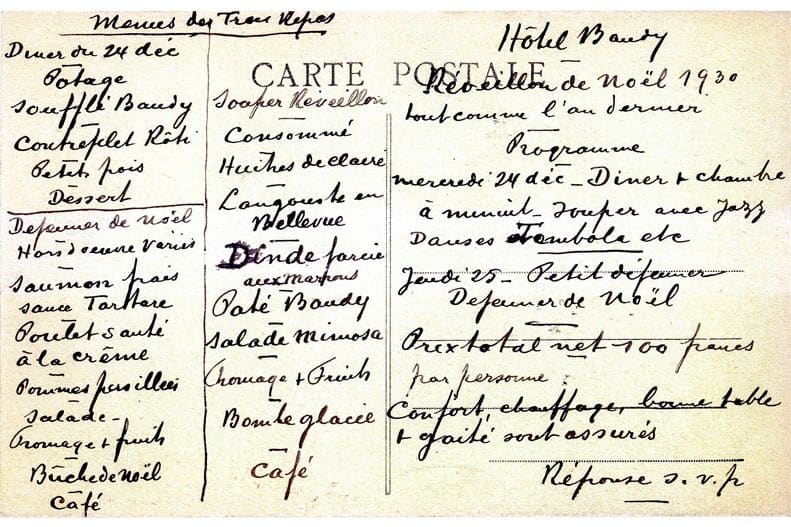 Menus des Trois Repas
Diner du 24 déc
Potage
Soufflé Baudy
Contrefilet Rôti
Petits pois
Dessert
Dejeuner de Noël
Hors d'oeuvre Variés
Saumon frais
sauce Tartare
Poulet Sauté
à la Crême
Pommes persillées
Salade -
Fromage + fruits
Bûche de Noël
Café
CARTE POSTALE
Souper Reveillon
Consommé
Huitres de claire
Langouste en
Bellevue
Dinde farcie
aux Marrons
Paté Baudy
Salade Mimosa
Fromage + Fruits
Bombe glacée
Café
Hôtel Baudy
Réveillon de Noël 1930
tout comme l'an dernier
Programme
mercredi 24 déc - Diner + chambre
à minuit - Souper avec Jazz
Danses Tombola etc
Jeudi 25 - Petit déjeuner
Dejeuner de Noël
Prix total net 100 francs
par personne
Confort, chauffage, bonne table
+ gaité sont assurés
Réponse s.v.p